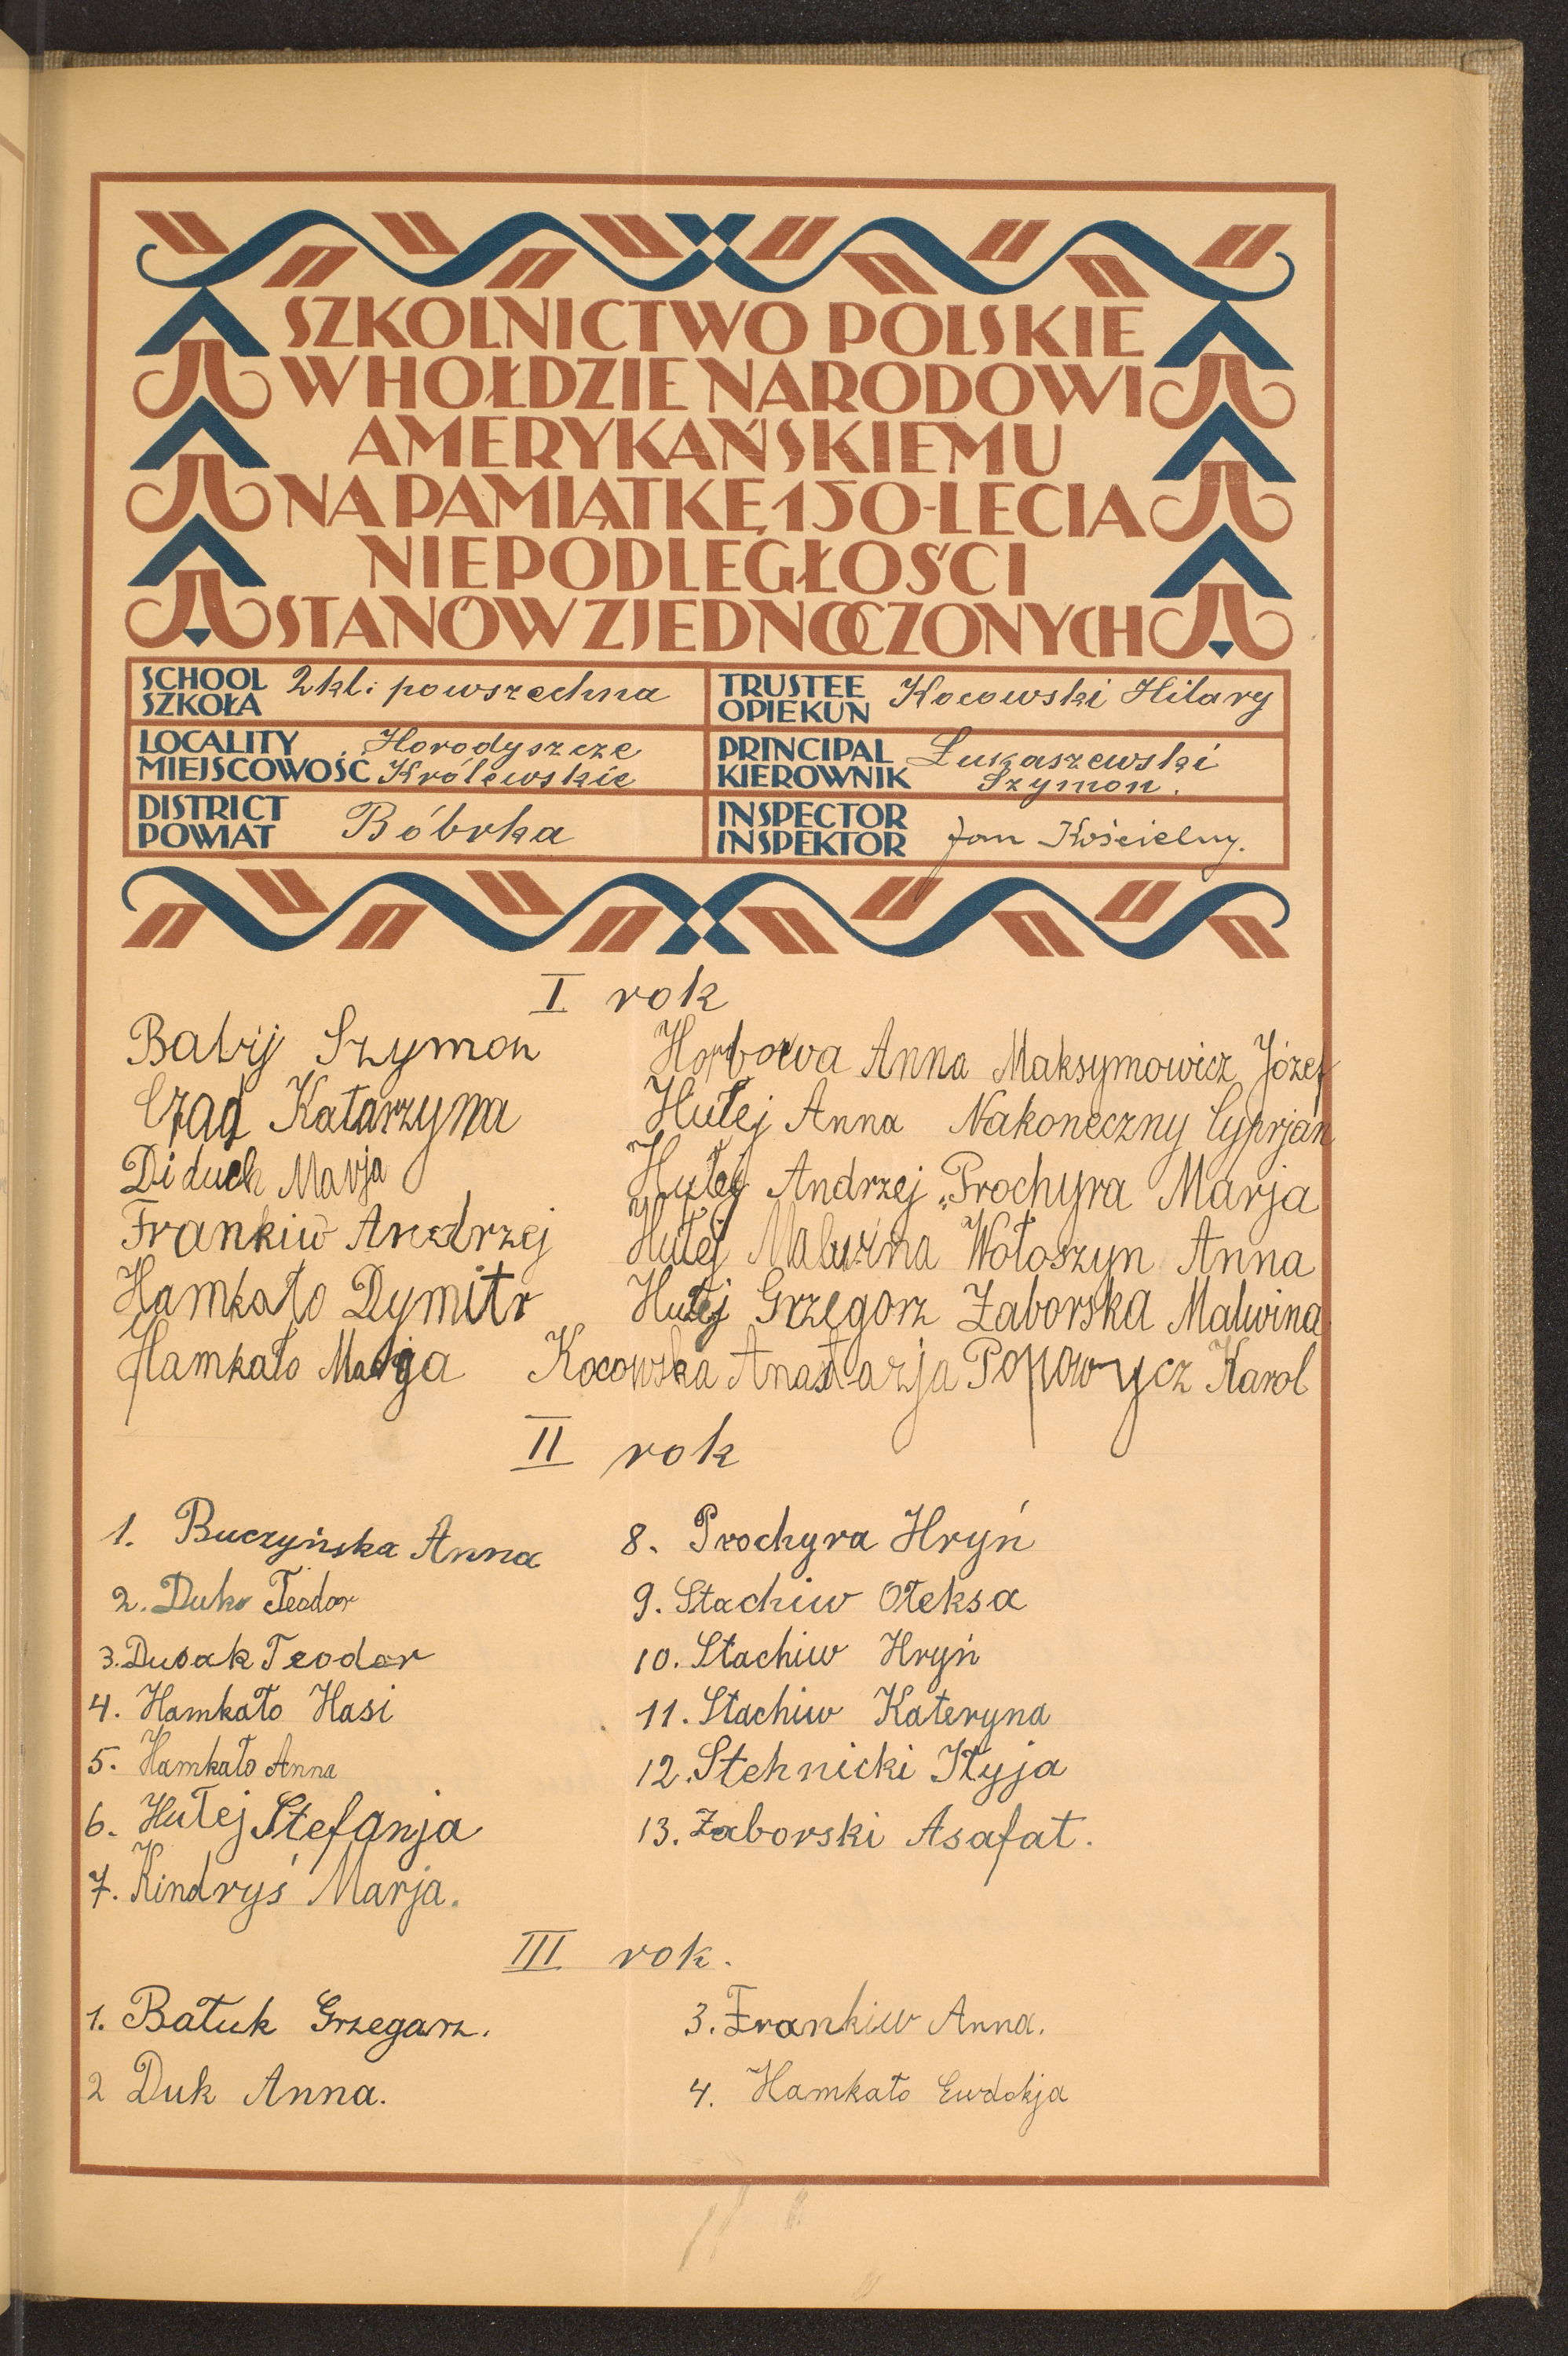 SZKOLNICTWO POLSKIE
W HOŁDZIE NARODOWI
AMERYKAŃSKIEMU
NA PAMIĄTKĘ 150-LECIA
NIEPODLEGŁOŚCI
STANÓW ZJEDNOCZONYCH
SCHOOL
SZKOŁA
2 kl. powszechna
TRUSTEE
OPIEKUN
Kocowski Hilary
LOCALITY
MIEJSCOWOŚĆ
Horodyszcze
Królewskie
PRINCIPAL
KIEROWNIK
Łukaszewski
Szymon.
DISTRICT
POWIAT
Bóbrka
INSPECTOR
INSPEKTOR
Jan Kościelny.
I rok
Babij Szymon
Czad Katarzyna
Diduch Marja
Frankiw Andrzej
Hamkało Dymitr
Hamkało Marja
Horbowa Anna Maksymowicz Józef
Hułej Anna Nakoneczny Cyprjan
Hułej Andrzej Prochyra Marja
Hułej Malwina Wołoszyn Anna
Hułej Grzegorz Zaborska Malwina
Kocowska Anastazja Popowycz Karol
II rok
1. Buczyńska Anna
2. Duk Teodor
3. Dusak Teodor
4. Hamkało Hasi
5. Hamkało Anna
6. Hułej Stefanja
7. Kindryś Marja.
8. Prochyra Hryń
9. Stachiw Ołeksa
10. Stachiw Hryń
11. Stachiw Kateryna
12. Stehnicki Iłyja
13. Zaborski Asafat.
III rok.
1. Bałuk Grzegarz.
2 Duk Anna.
3. Frankiw Anna.
4. Hamkało Ewdokja